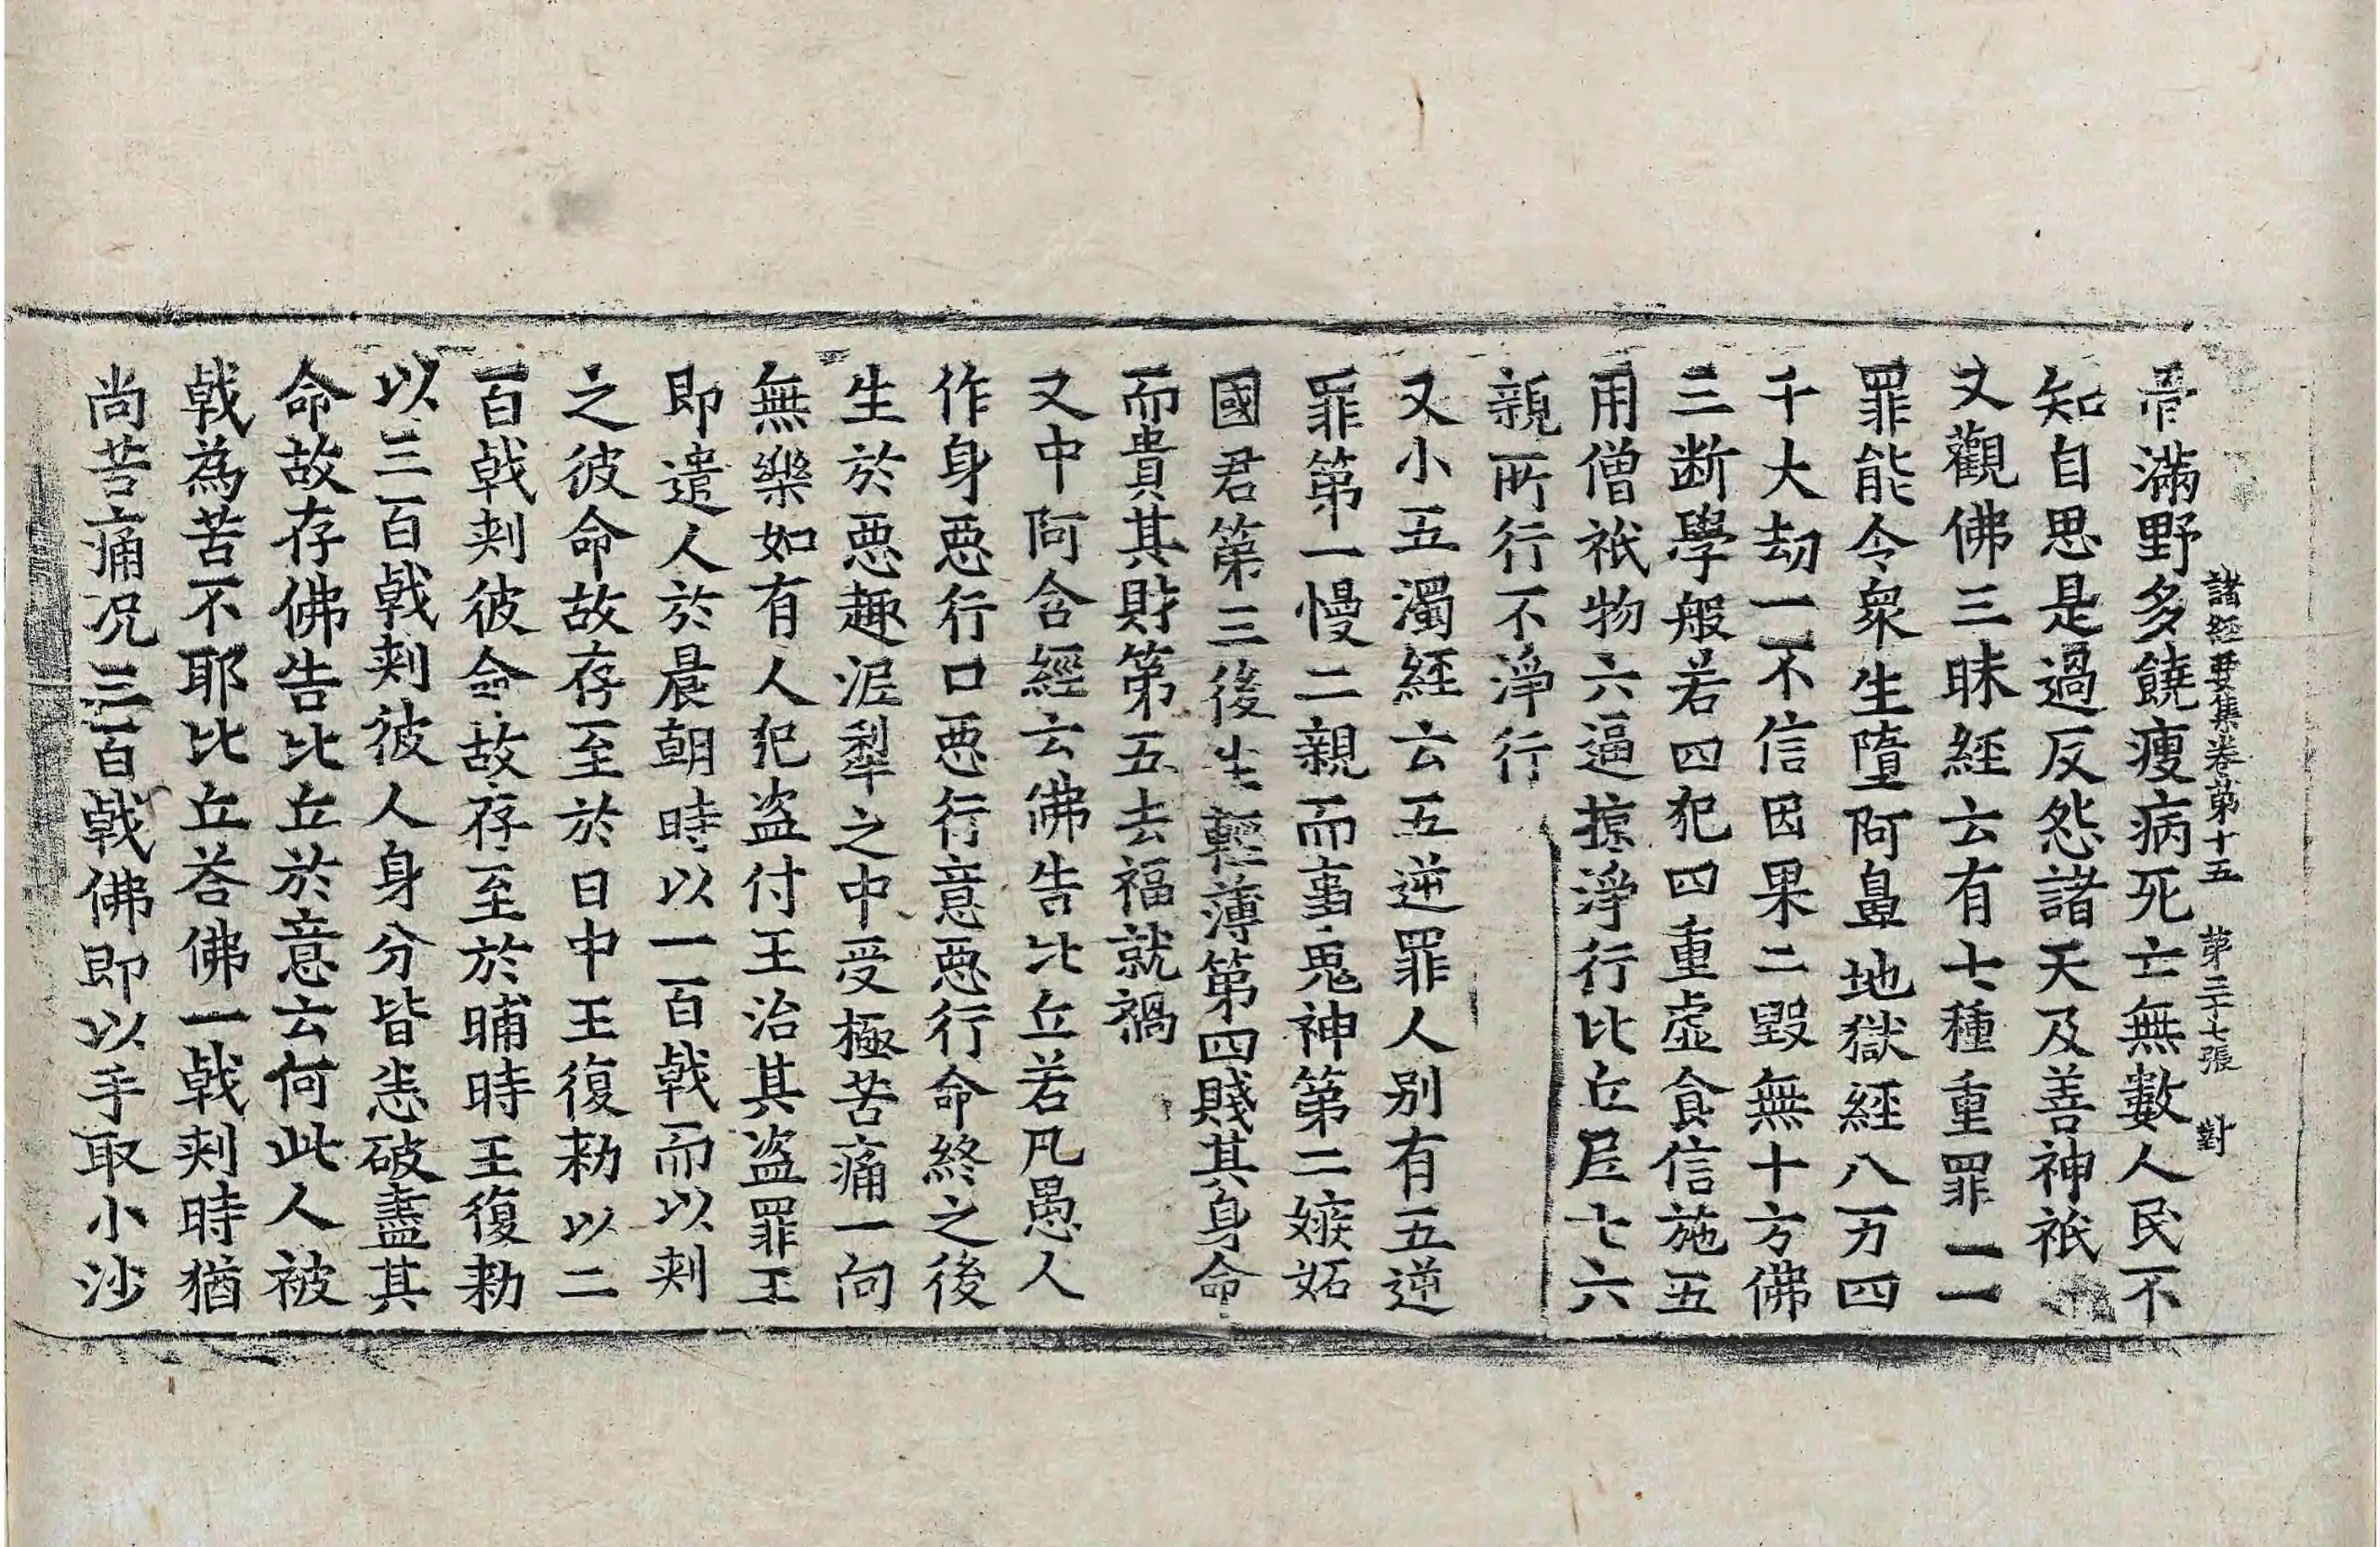 諸經要集卷第十五 第二十七張 對
滿野多饒瘦病死亡無數人民不
知自思是過反怨諸天及善神祇
又觀佛三昧経云有七種重罪一一
罪能令衆生墮阿鼻地獄経八万四
千大劫一不信因果二毀無十方佛
三断學般若四犯四重虛食信施五
用僧祇物六逼掠淨行比丘尼七六
親所行不淨行
又小五濁経云五逆罪人別有五逆
罪第一慢二親而事鬼神第二嫉妬
國君第三後生輕薄第四賤其身命
而貴其財第五去福就禍
又中阿含經云佛告比丘若凡愚人
作身悪行口悪行意悪行命終之後
生於悪趣泥犁之中受極苦痛一向
無樂如有人犯盗付王治其盗罪王
即遣人於晨朝時以一百戟而以刾
之彼命故存至於日中王復勑以二
百戟刾彼命故存至於晡時王復勑
以三百戟刾彼人身分皆悉破盡其
命故存佛告比丘於意云何此人被
戟為苦不耶比丘荅佛一戟刾時猶
尚苦痛况三百戟佛即以手取小沙